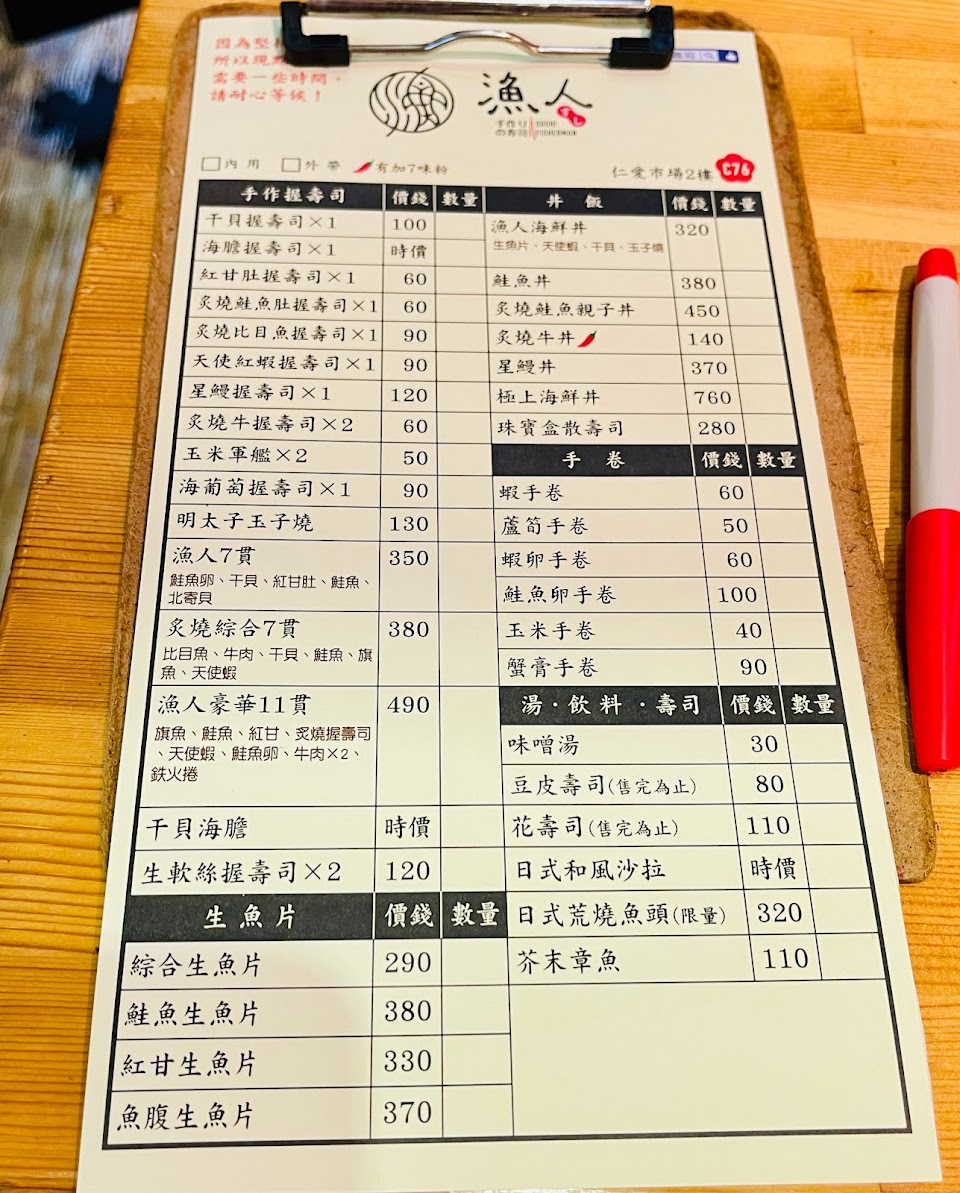 因為堅
所以現
需要一些時間，
請耐心等候！
漁人
すし
手作り
の寿司
內用 外帶 有加7味粉
仁愛市場2樓 C76
手作握壽司 價錢 數量
干貝握壽司×1 100
海膽握壽司×1 時價
紅甘肚握壽司×1 60
炙燒鮭魚肚握壽司×1 60
炙燒比目魚握壽司×1 90
天使紅蝦握壽司×1 90
星鰻握壽司×1 120
炙燒牛握壽司×2 60
玉米軍艦×2 50
海葡萄握壽司×1 90
明太子玉子燒 130
漁人7貫 350
鮭魚卵、干貝、紅甘肚、鮭魚、
北寄貝
炙燒綜合7貫 380
比目魚、牛肉、干貝、鮭魚、旗
魚、天使蝦
漁人豪華11貫 490
旗魚、鮭魚、紅甘、炙燒握壽司
、天使蝦、鮭魚卵、牛肉×2、
鉄火捲
干貝海膽 時價
生軟絲握壽司×2 120
生魚片 價錢 數量
綜合生魚片 290
鮭魚生魚片 380
紅甘生魚片 330
魚腹生魚片 370
丼飯 價錢 數量
漁人海鮮丼 320
生魚片、天使蝦、干貝、玉子燒
鮭魚丼 380
炙燒鮭魚親子丼 450
炙燒牛丼 140
星鰻丼 370
極上海鮮丼 760
珠寶盒散壽司 280
手卷 價錢 數量
蝦手卷 60
蘆筍手卷 50
蝦卵手卷 60
鮭魚卵手卷 100
玉米手卷 40
蟹膏手卷 90
湯・飲料・壽司 價錢 數量
味噌湯 30
豆皮壽司(售完為止) 80
花壽司(售完為止) 110
日式和風沙拉 時價
日式荒燒魚頭(限量) 320
芥末章魚 110